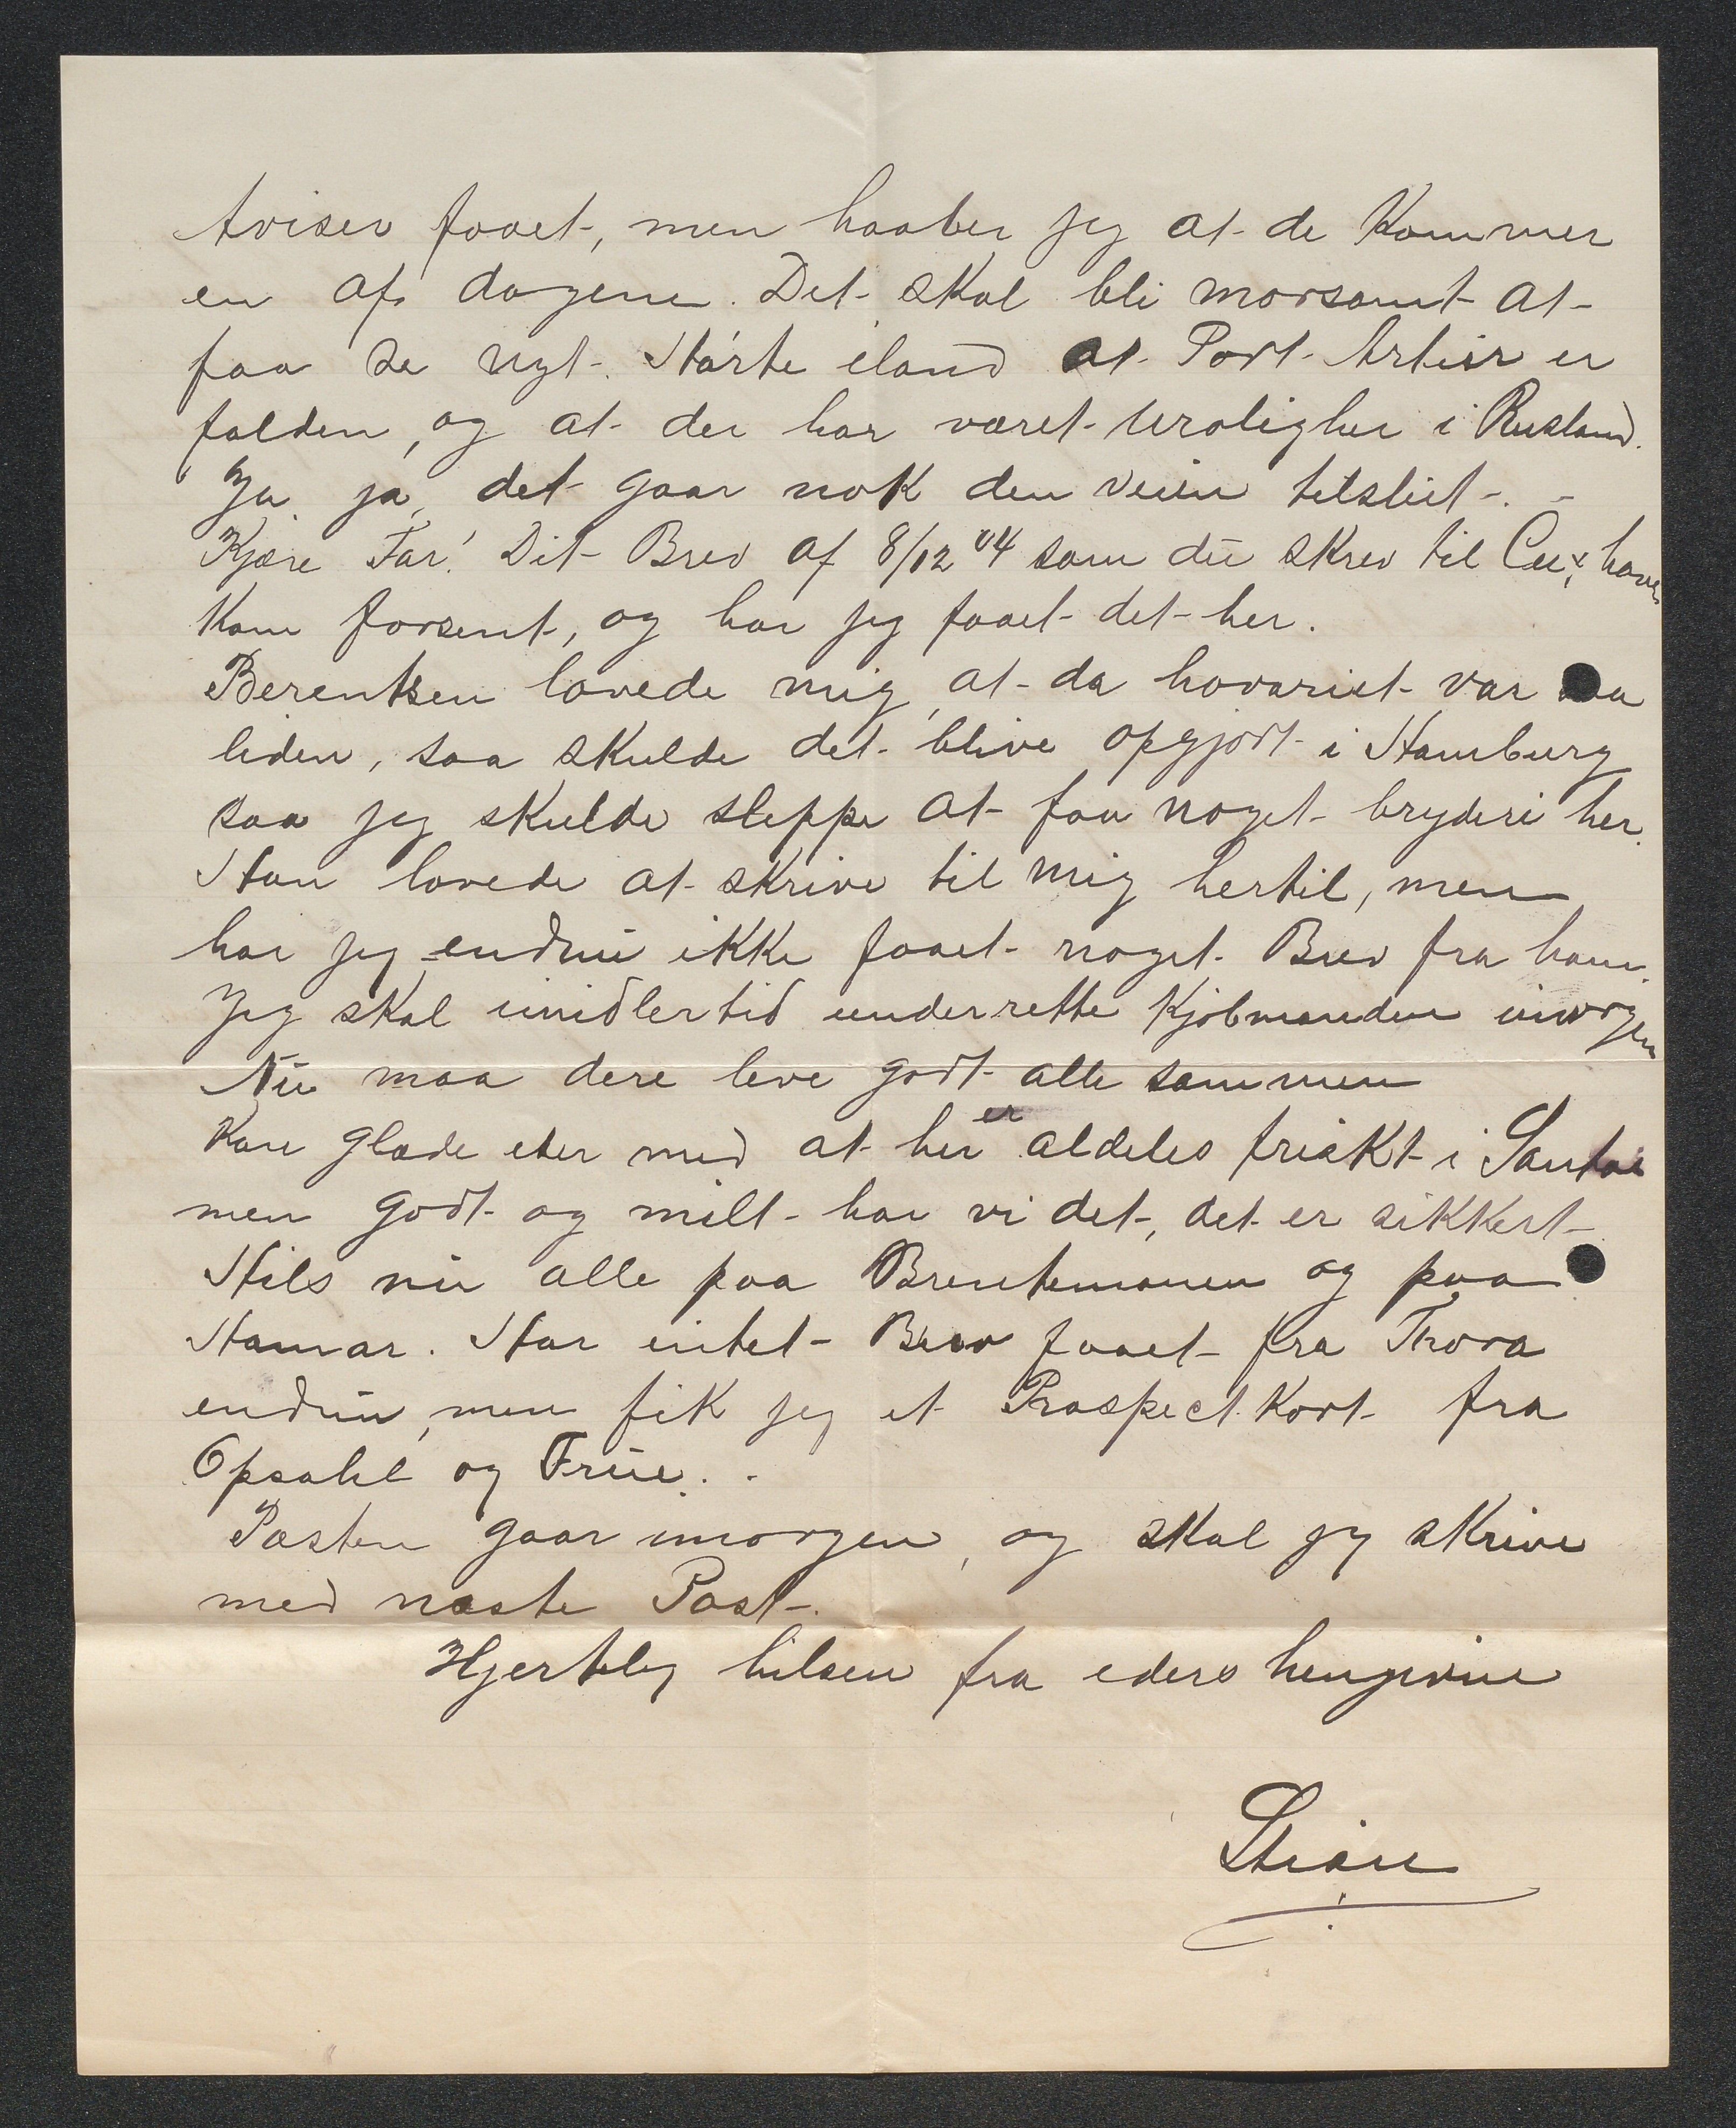 Aviser faaet, men haaber jeg at de Kommer
en af dagene. Det skal bli morsomt at
faa se nyt. Hørte iland at Port Artur er
falden, og at der har været uroligher i Rusland.
Ja ja, det gaar nok den veien tilslut. -
Kjære Far! Dit Brev af 8/12 04 som du skrev til Cuxhaven
Kom forsent, og har jeg faaet det her.
Berentsen lovede mig, at da havariet var saa
liden, saa skulde det blive opgjort i Hamburg
saa jeg skulde sleppe at faa noget bryderi her.
Han lovede at skrive til mig hertil, men
har jeg endnu ikke faaet noget Brev fra ham.
Jeg skal imidlertid underrette Kjøbmanden imorgen
Nu maa dere leve godt alle sammen
Kan glæde eder med at her er aldeles friskt i Santos
men godt og mildt har vi det, det er sikkert
Hils nu alle paa og paa
Hamar. Har intet Brev faaet fra Thora
endnu, men fik jeg et Prospect Kort fra
Opsahl og Frue. .
Posten gaar imorgen, og skal jeg skrive
med næste Post.
Hjertelig hilsen fra eders hengivne
Stian